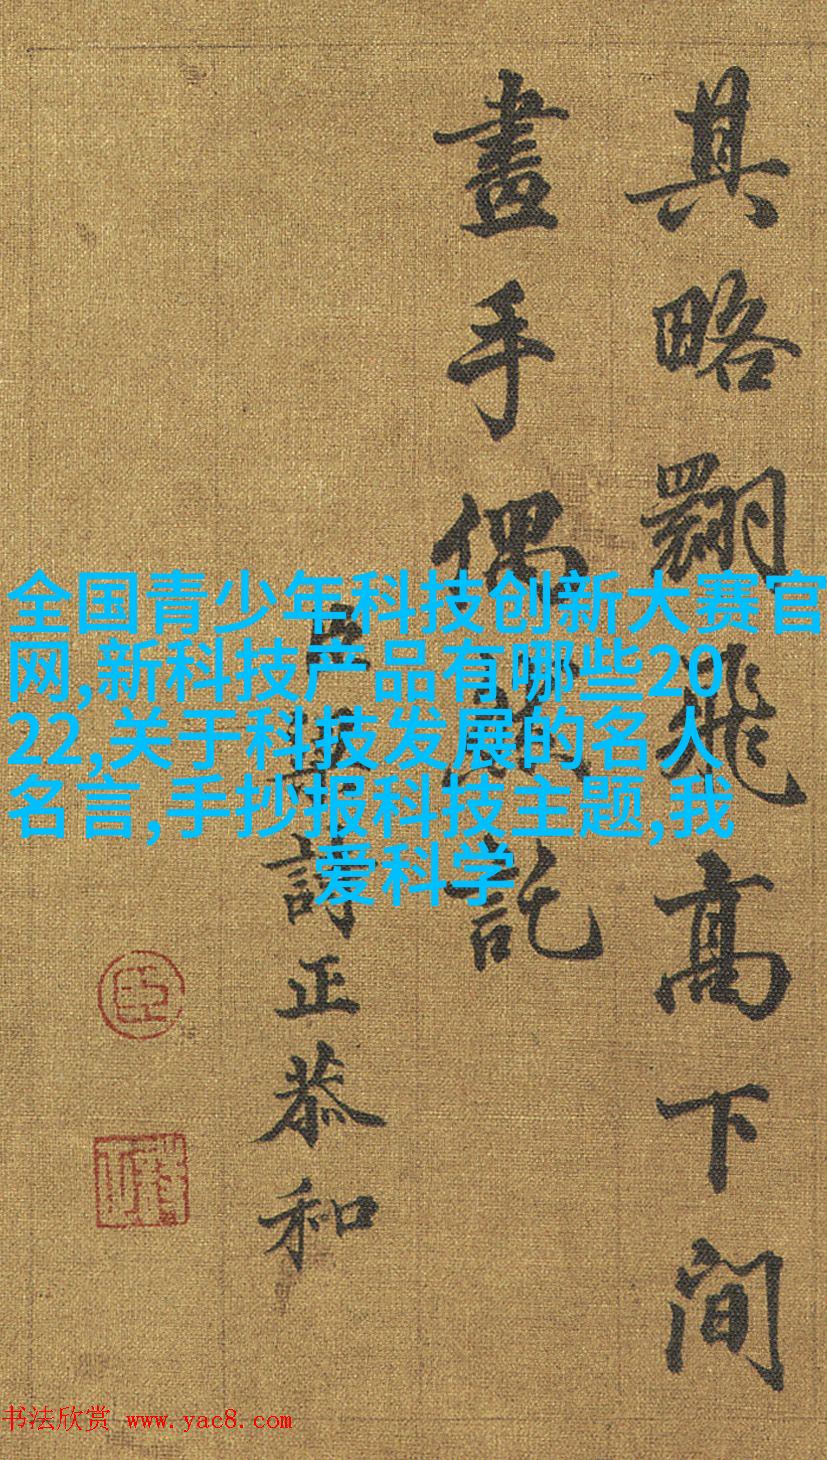 其略翾飛高下間
畫手偶託
臣梁詩正恭和
臣
全国青少年科技创新大赛官
网,新科技产品有哪些20
22,关于科技发展的名人
名言,手抄报科技主题,我
爱科学
书法欣赏 www.yac8.com